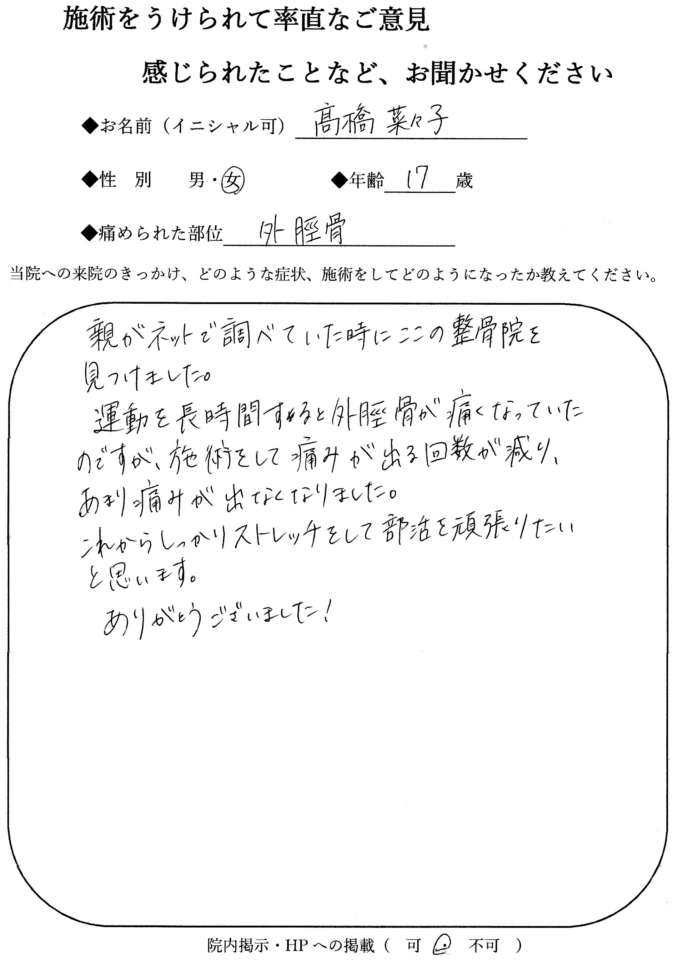 施術をうけられて率直なご意見
感じられたことなど、お聞かせください
◆お名前（イニシャル可） 髙橋 菜々子
◆性　別　　男・女　　◆年齢 17 歳
◆痛められた部位 外脛骨
当院への来院のきっかけ、どのような症状、施術をしてどのようになったか教えてください。
親がネットで調べていた時にここの整骨院を
見つけました。
運動を長時間すると外脛骨が痛くなっていた
のですが、施術をして痛みが出る回数が減り、
あまり痛みが出なくなりました。
これからしっかりストレッチをして部活を頑張りたい
と思います。
ありがとうございました！
院内掲示・HPへの掲載（　可　・　不可　）